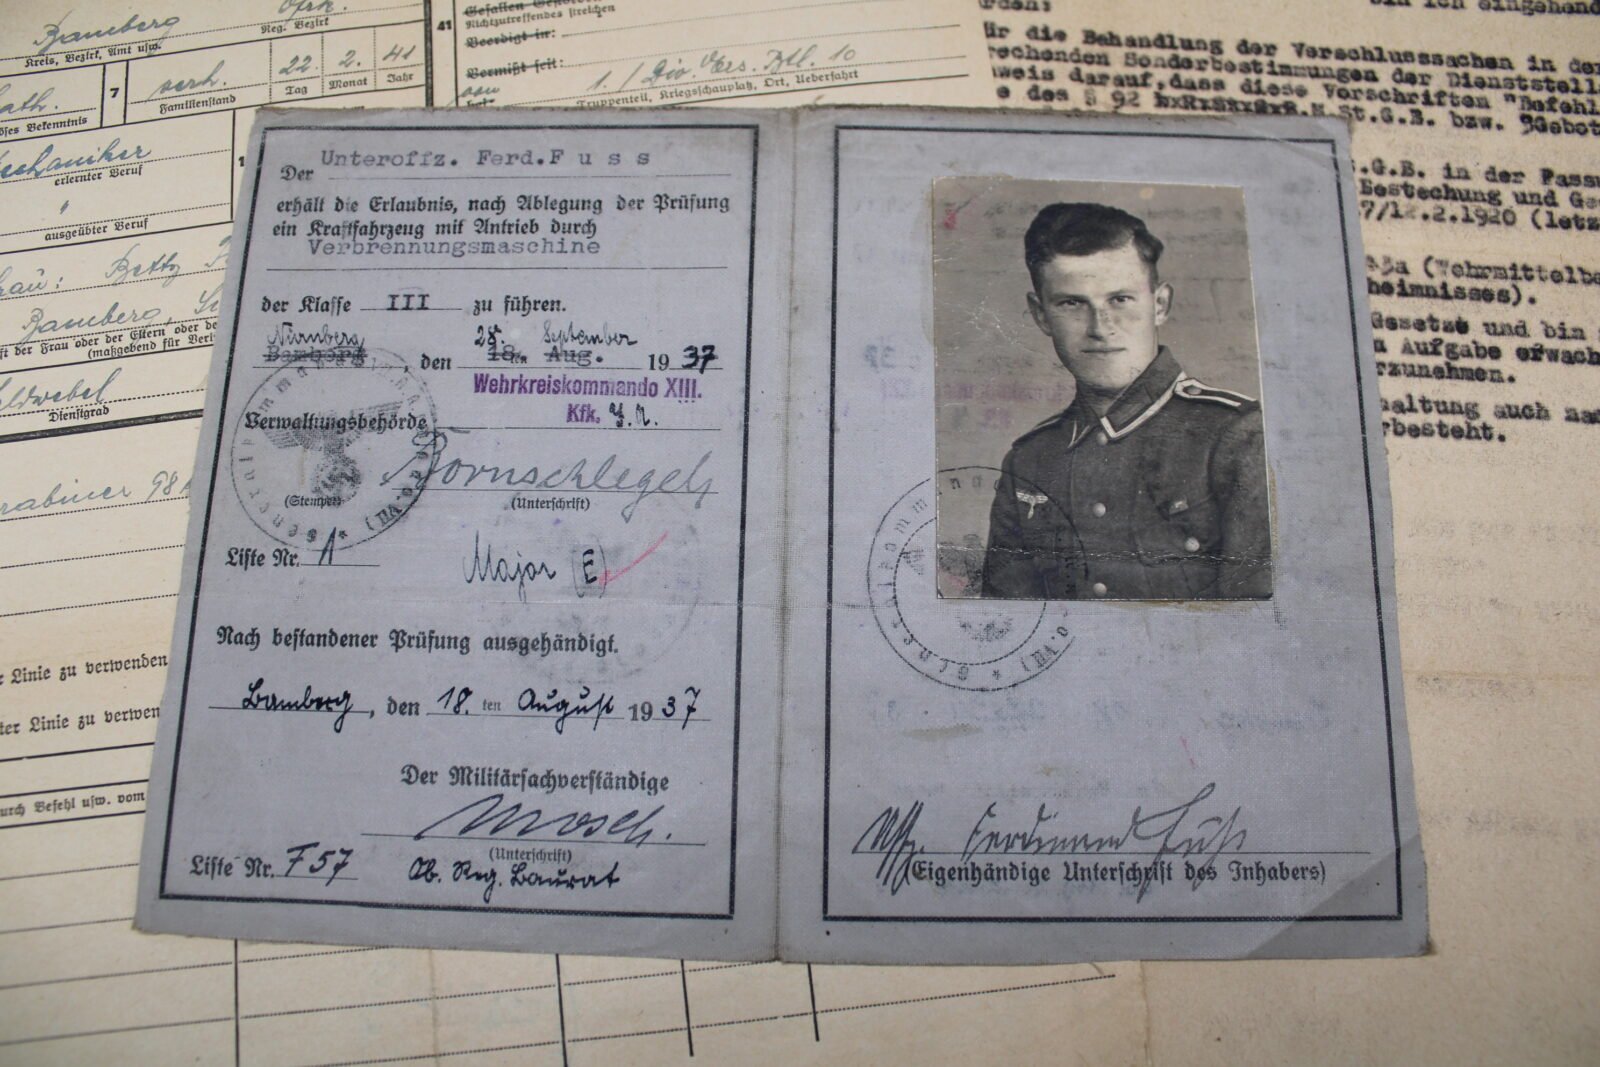 Bamberg
Kreis, Bezirk, Amt usw.
Reg. Bezirk
7
verh.
Familienstand
22.
Tag
2.
Monat
41
Jahr
Bekenntnis
erlernter Beruf
ausgeübter Beruf
Betty
Bamberg,
der Frau oder der Eltern oder
(maßgebend für
Dienstgrad
98
Linie zu verwenden
Linie zu verwen
Befehl usw. vom
41
Gefallen
Nichtzutreffendes streichen
Beerdigt in:
Vermißt seit:
1. / Div. Ers. Btl. 10
Truppenteil, Kriegsschauplatz, Ort, Ueberfahrt
bin ich eingehend
die Behandlung der Verschlusssachen in
Sonderbestimmungen der
darauf, dass diese Vorschriften "Befehl
des § 92 R.M.St.G.B. bzw.
.G.B. in der
Bestechung und
7/12.2.1920
Gesetze und bin
Aufgabe
altung auch
besteht.
Der Unteroffz. Ferd. F u s s
erhält die Erlaubnis, nach Ablegung der Prüfung
ein Kraftfahrzeug mit Antrieb durch
Verbrennungsmaschine
der Klasse III zu führen.
Nürnberg 28. September
Bamberg, den 18ten Aug. 1937
Wehrkreiskommando XIII.
Kfk. J.A.
Verwaltungsbehörde
Bornschlegel
(Stempel) (Unterschrift)
Generalkommando
Liste Nr. 1
Major (E)
Nach bestandener Prüfung ausgehändigt.
Bamberg, den 18. ten August 1937
Der Militärsachverständige
Mosch.
(Unterschrift)
Liste Nr. F57 Ob. Reg. Baurat
Generalkommando
Uffz. Ferdinand Fuss
(Eigenhändige Unterschrift des Inhabers)